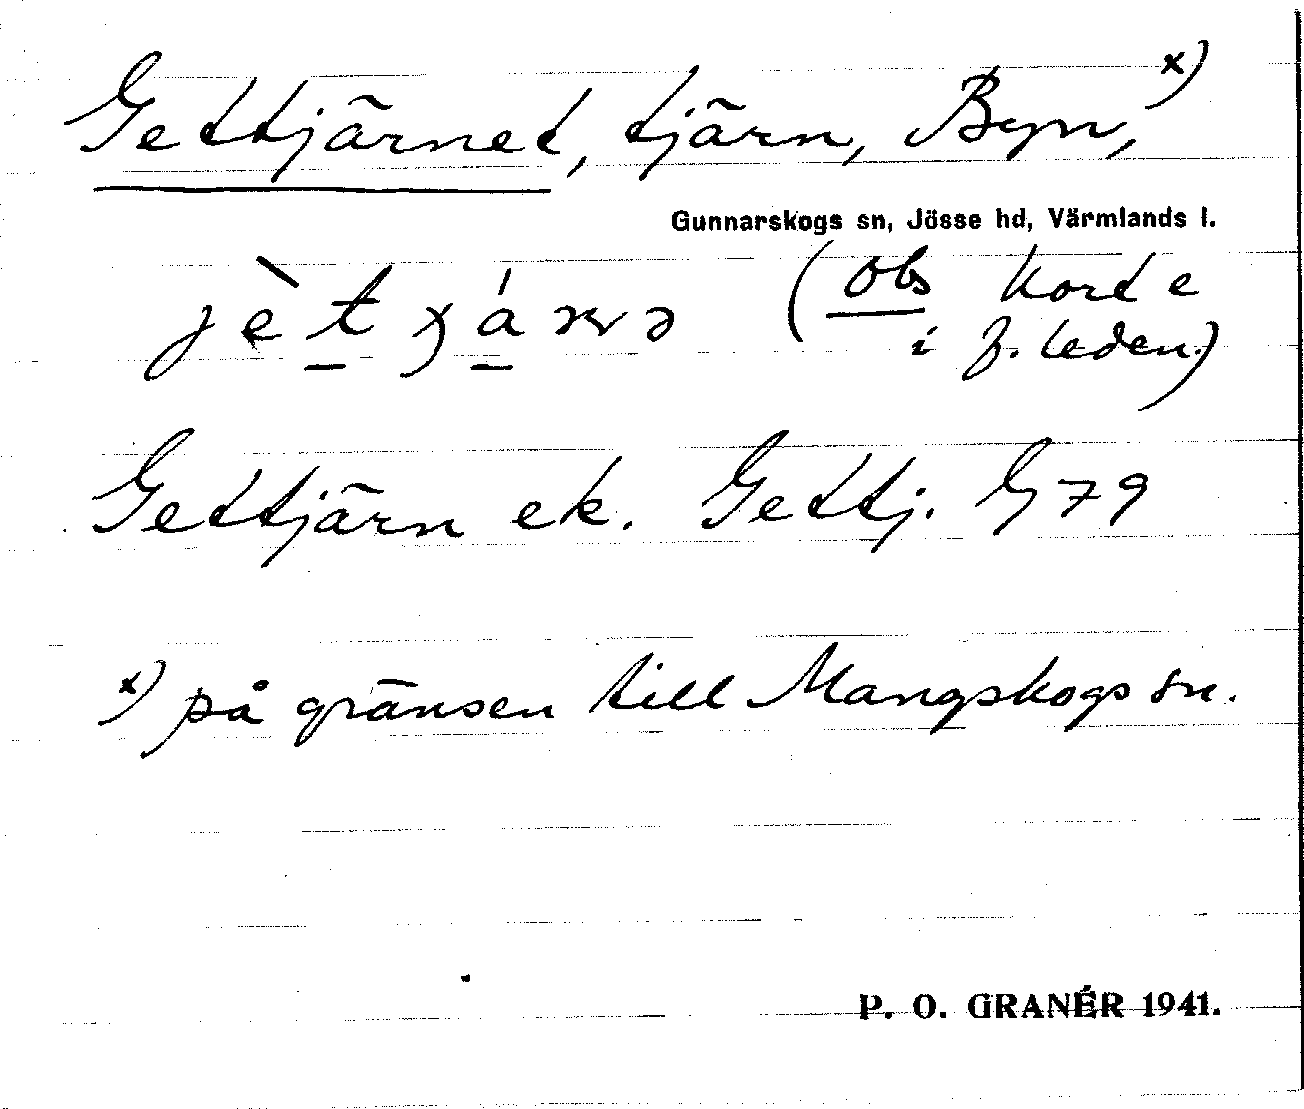 Gettjärnet, tjärn, Byn, x)
Gunnarskogs sn, Jösse hd, Värmlands l.
(Obs kort e
i f. leden.)
Gettjärn ek. Gettj. G 79
x) på gränsen till Mangskogs sn.
P. O. GRANÉR 1941.